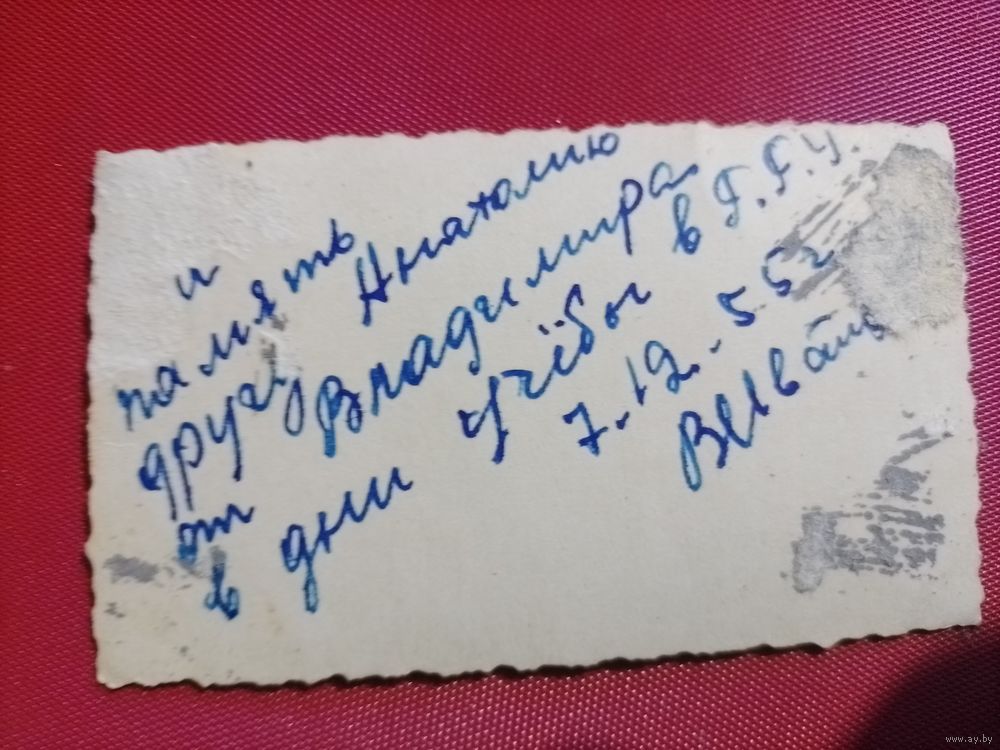 и
память
другу Анатолию
от Владимира
в дни учёбы в Г.Г.У.
7.12.55г
www.ay.by